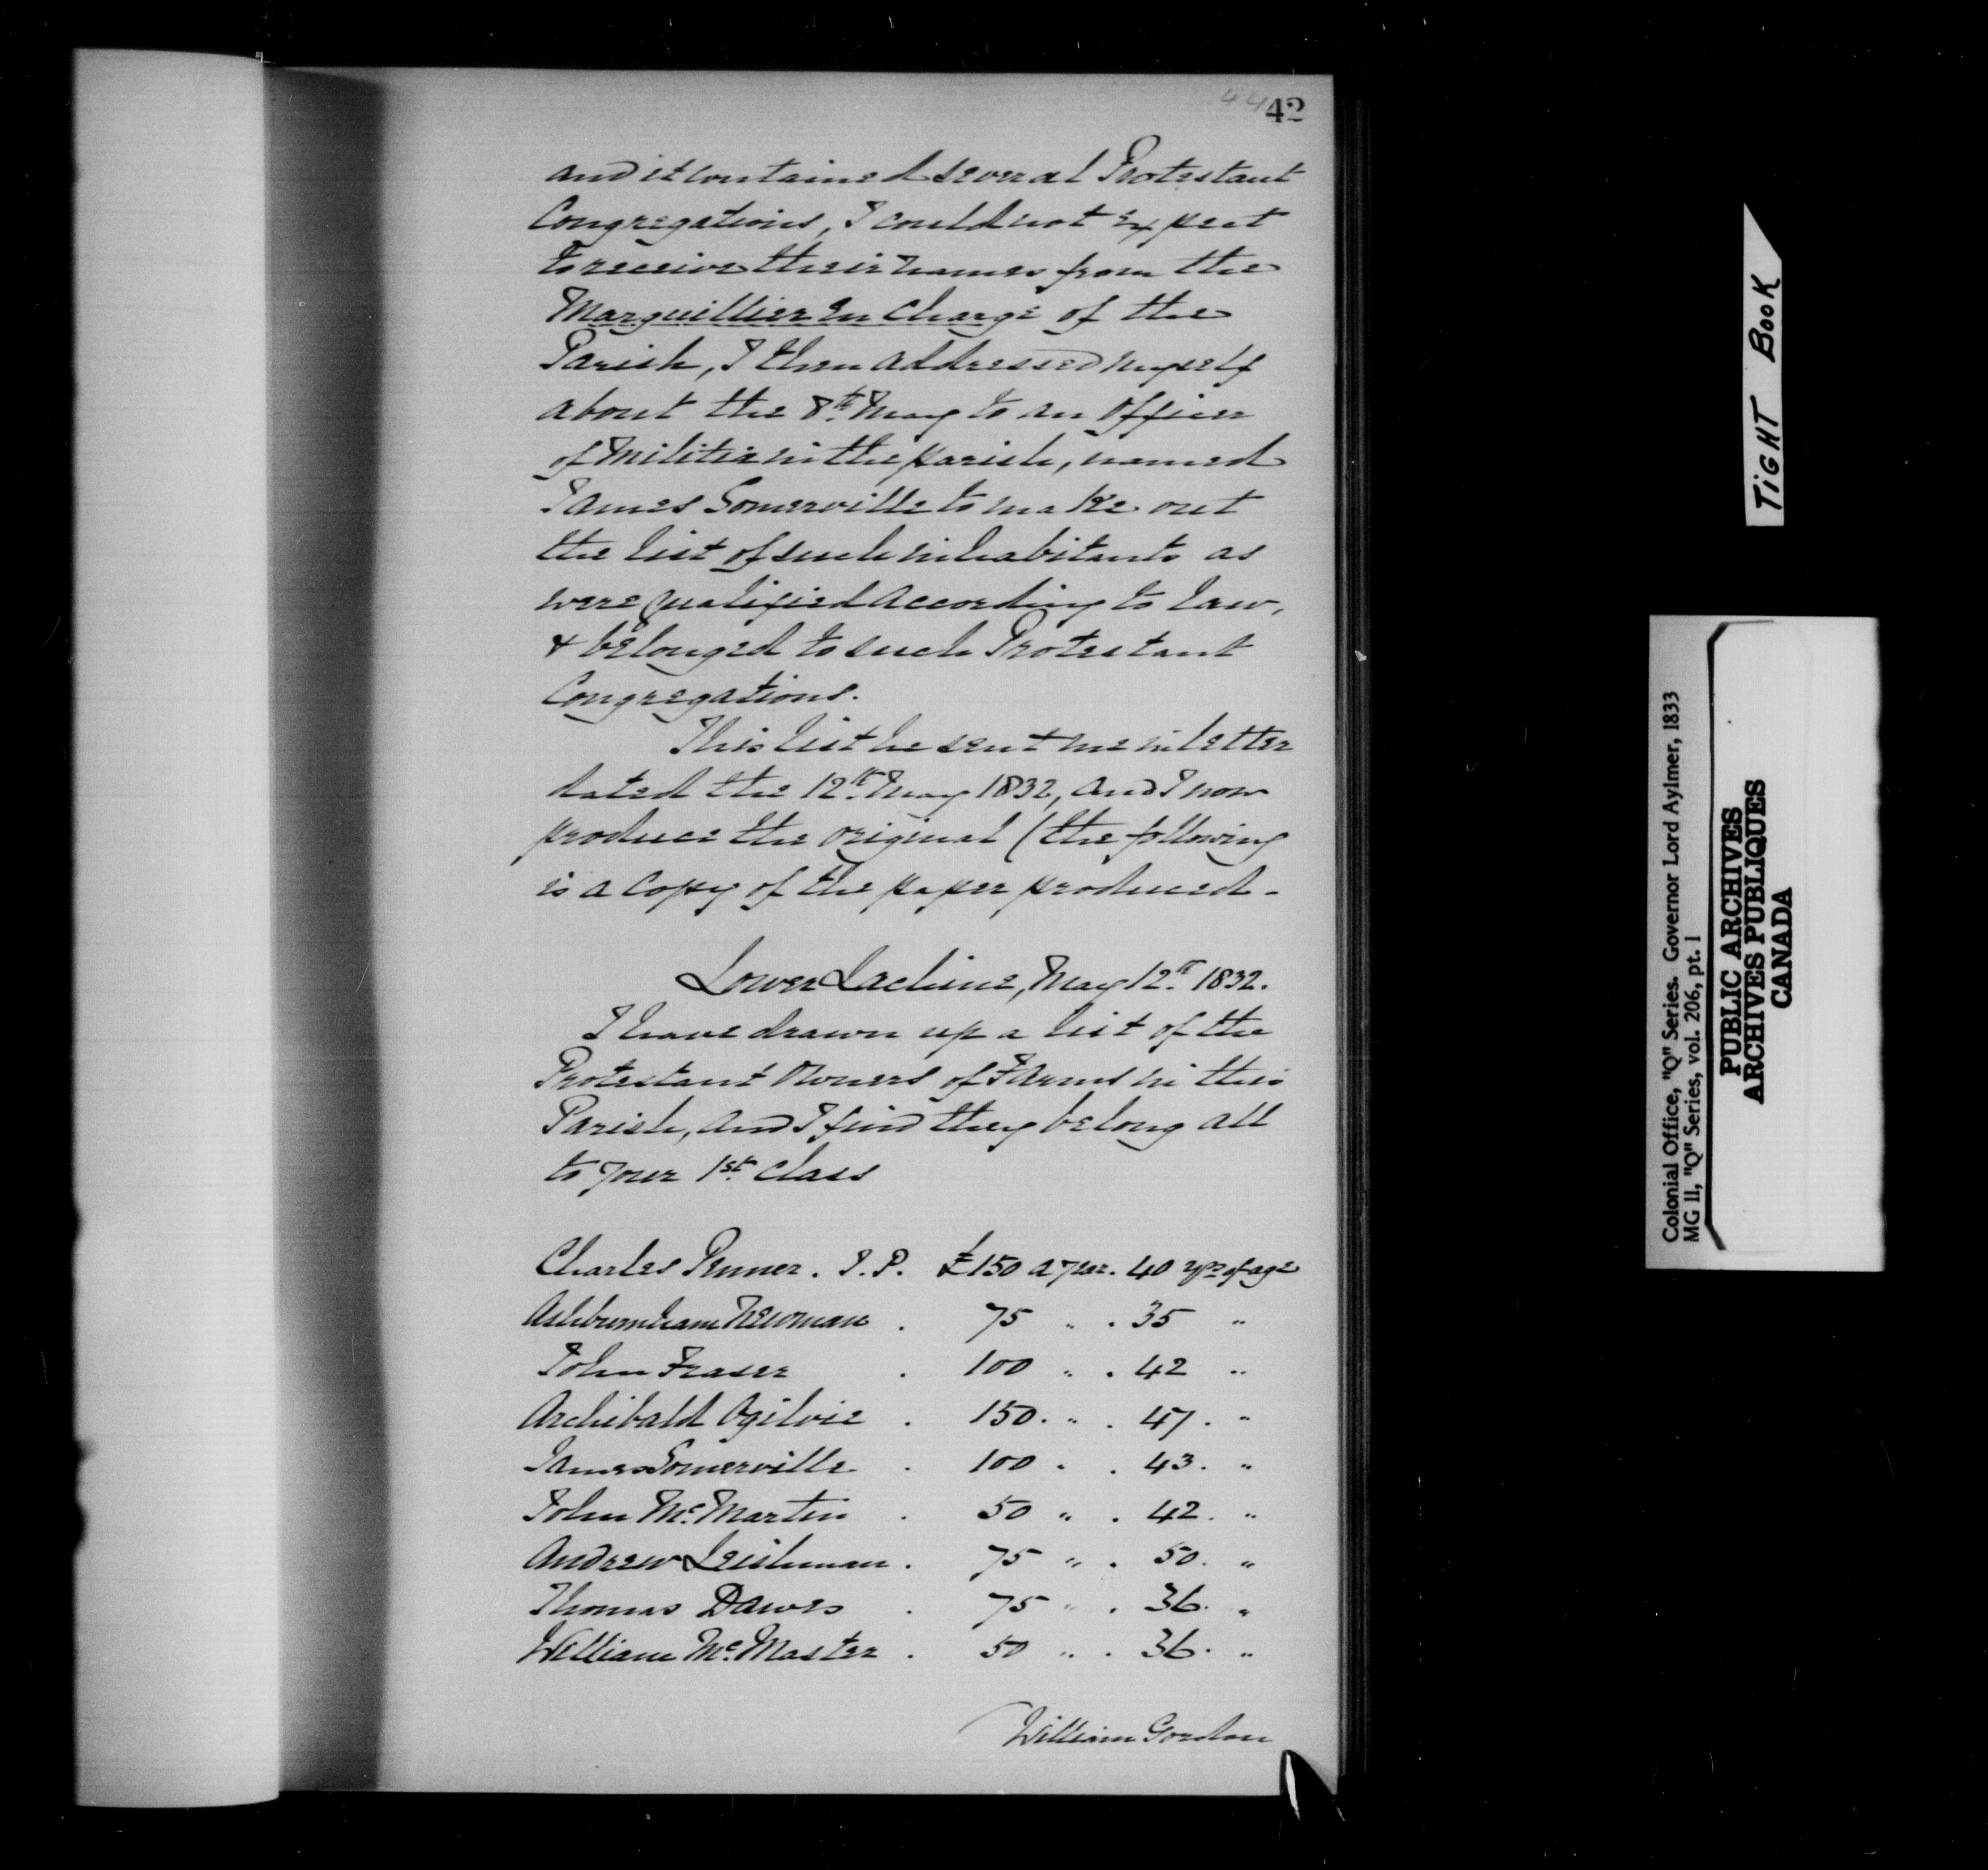 44 42
and it contained several Protestant
Congregations, I could not expect
to receive their names from the
Marguillier en Charge of the
Parish, I then addressed myself
about the 8th May to an Officer
of Militia in the parish, named
James Somerville to make out
the list of such inhabitants as
were qualified according to law,
& belonged to such Protestant
Congregations.
This list he sent me in letter
dated the 12th May 1832, and I now
produce the original (the following
is a copy of the paper produced -
Lower Lachine, May 12th 1832.
I have drawn up a list of the
Protestant Owners of Farms in this
Parish, and I find they belong all
to your 1st class
Charles Penner. J.P. £150 a year. 40 yrs of age
Ashburnham Newman . 75 " . 35 "
John Fraser . 100 " . 42 "
Archibald Ogilvie . 150. " . 47. "
James Somerville . 100 " . 43. "
John McMartin . 50 " . 42. "
Andrew Leishman . 75 " . 50. "
Thomas Dawes . 75 " . 36. "
William McMaster . 50 " . 36. "
William Gordon
TIGHT BOOK
Colonial Office, "Q" Series. Governor Lord Aylmer, 1833
MG 11, "Q" Series, vol. 206, pt. 1
PUBLIC ARCHIVES
ARCHIVES PUBLIQUES
CANADA